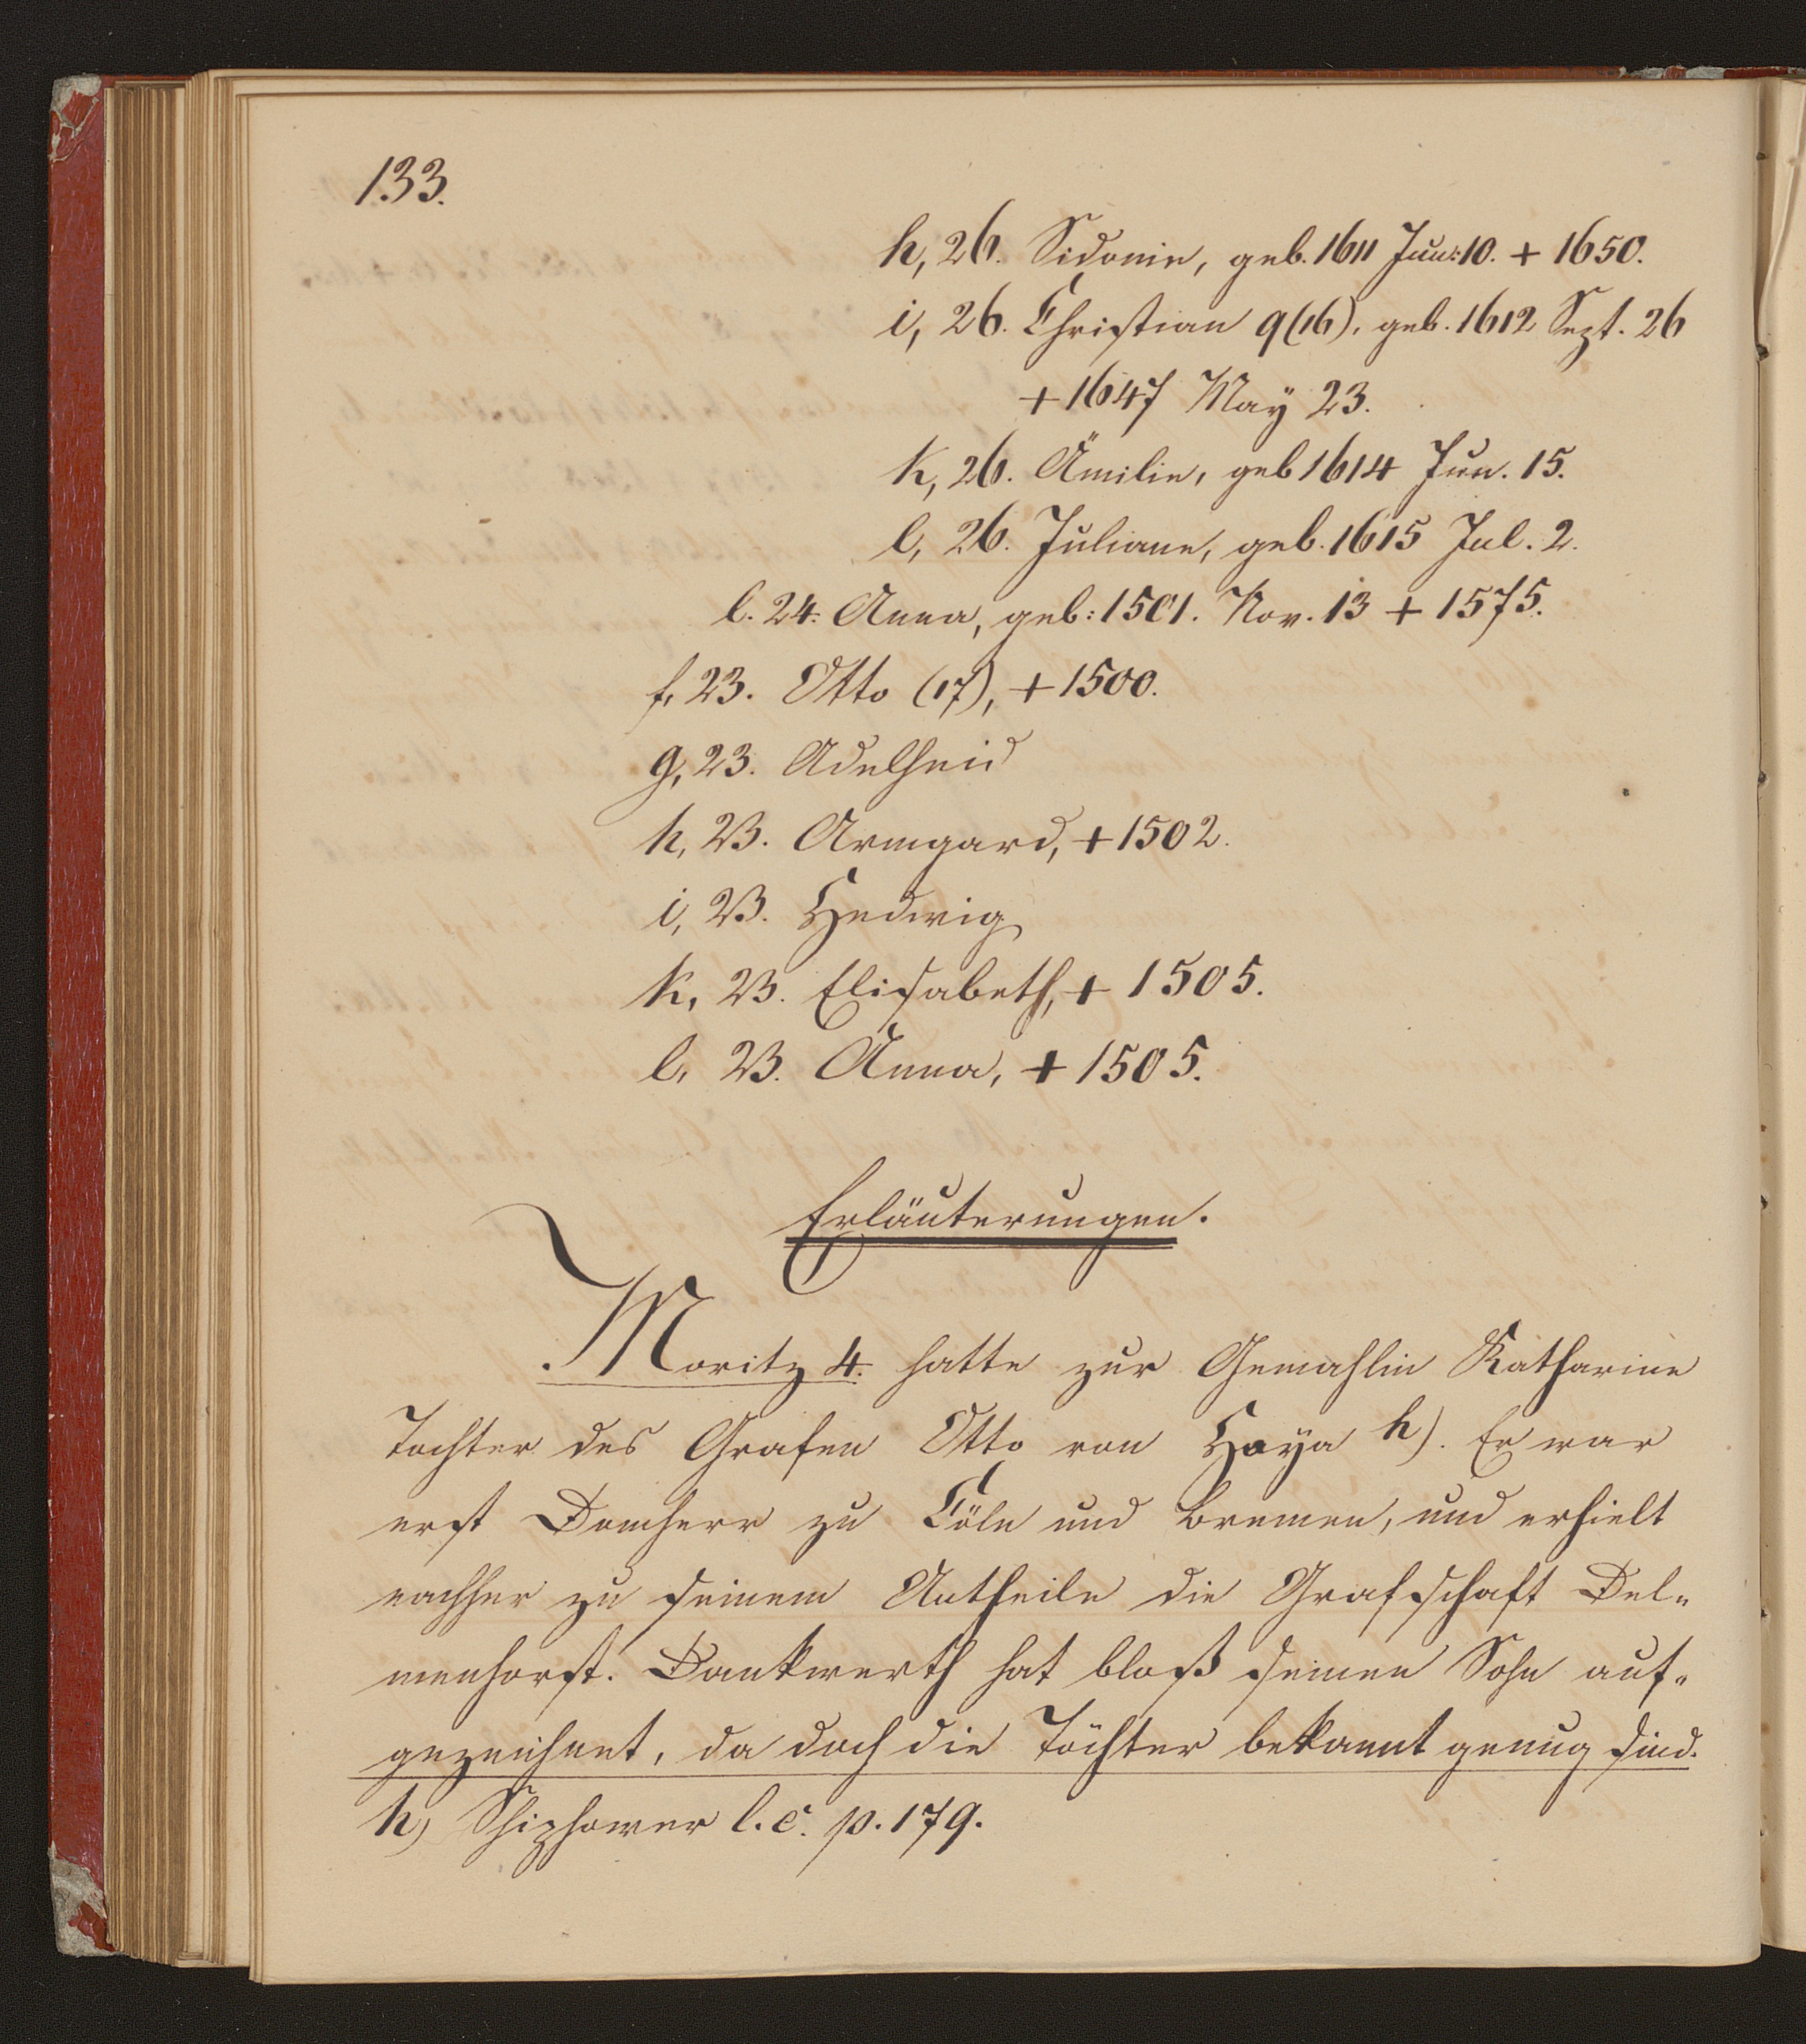 133.
h, 26. Sidonie, geb. 1611 Jun: 10. + 1650.
i, 26. Christian 9(16), geb. 1612 Sept. 26
+ 1647 Maÿ 23.
k, 26. Ämilie, geb 1614 Jun. 15.
l, 26. Juliane, geb. 1615 Jul. 2.
l. 24. Anna, geb: 1501. Nov. 13 + 1575.
f, 23. Otto (17), + 1500.
g, 23. Adelheid
h, 23. Armgard, + 1502.
i, 23. Hedwig
k, 23. Elisabeth, + 1505.
l, 23. Anna, + 1505.
Erläuterungen.
Moritz 4. hatte zur Gemahlin Katharine
Tochter des Grafen Otto von Hoya h). Er war
erst Domherr zu Cöln und Bremen, und erhielt
nachher zu seinem Antheile die Grafschaft Del„
menhorst. Dankwerth hat bloß seinen Sohn auf„
gezeichnet, da doch die Töchter bekannt genug sind.
h) Schiphower l. c. p. 179.